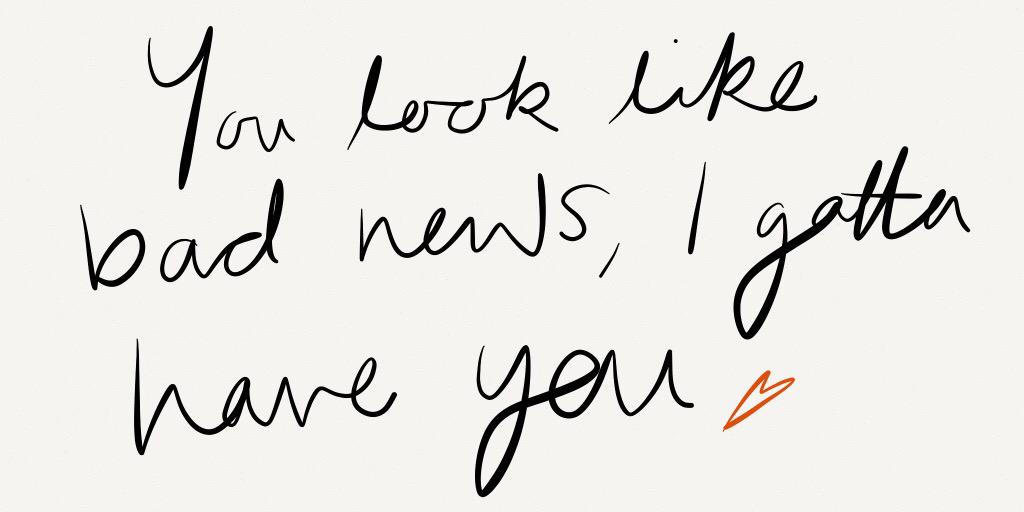 You look like
bad news, I gotta
have you